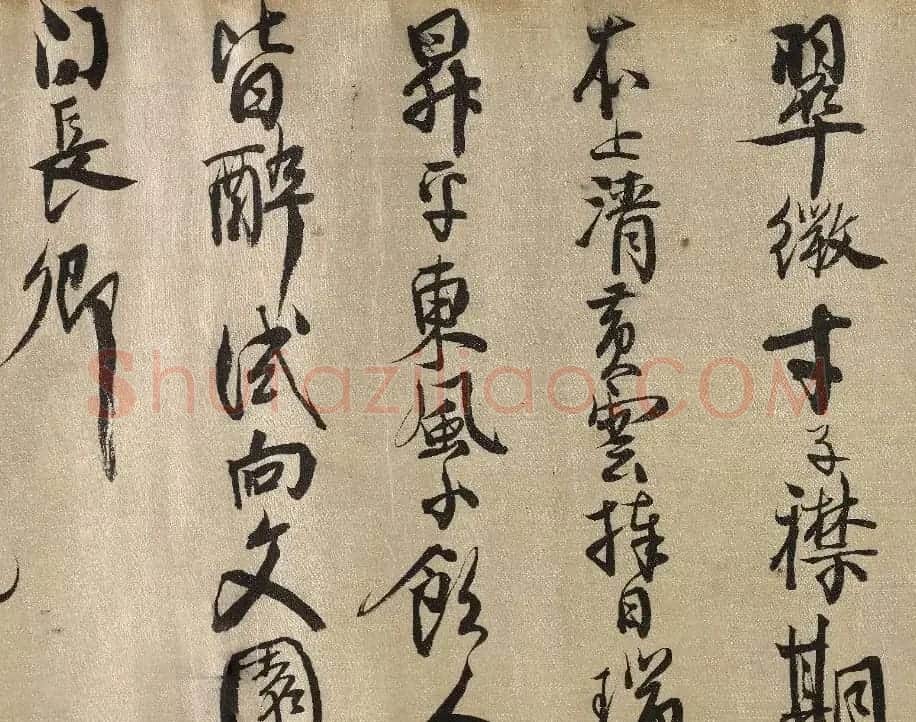 翠微才子襟期
本上清黄雲捧日瑞
昇平東風小飲人
皆醉試向文園
問長卿
Shufaziliao.COM